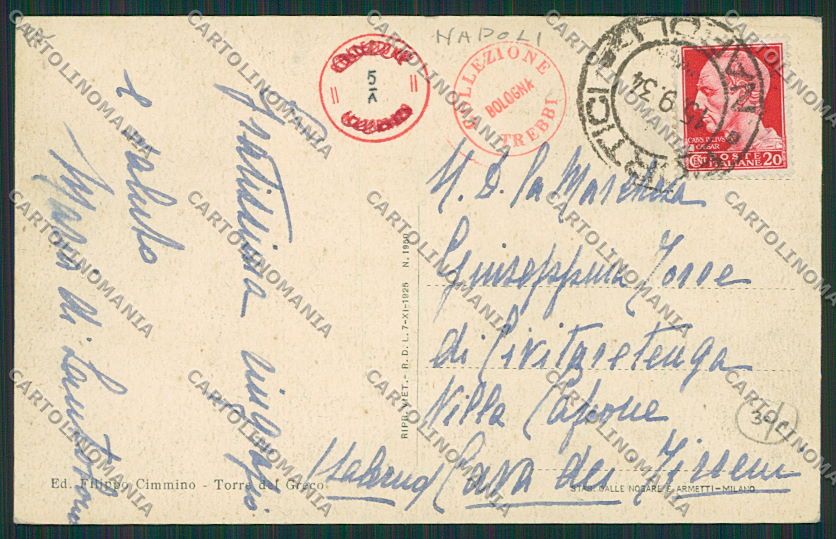 NAPOLI
COLLEZIONE
BOLOGNA
TREBBI
5/A
PORTICI
NAPOLI
15.9.34
CAIVS IVLIVS
CAESAR
POSTE
ITALIANE
CENT 20
Gratissima ringrazio
e saluto
Maria di
N. D. la Marchesa
Giuseppina Torre
di Civitaretenga
Villa Capone
Cava dei Tirreni
(Salerno)
39
RIPR. VIET. - R. D. L. 7-XI-1925 N. 1950
Ed. Filippo Cimmino - Torre del Greco
STAB. DALLE NOGARE E ARMETTI - MILANO
CARTOLINOMANIA